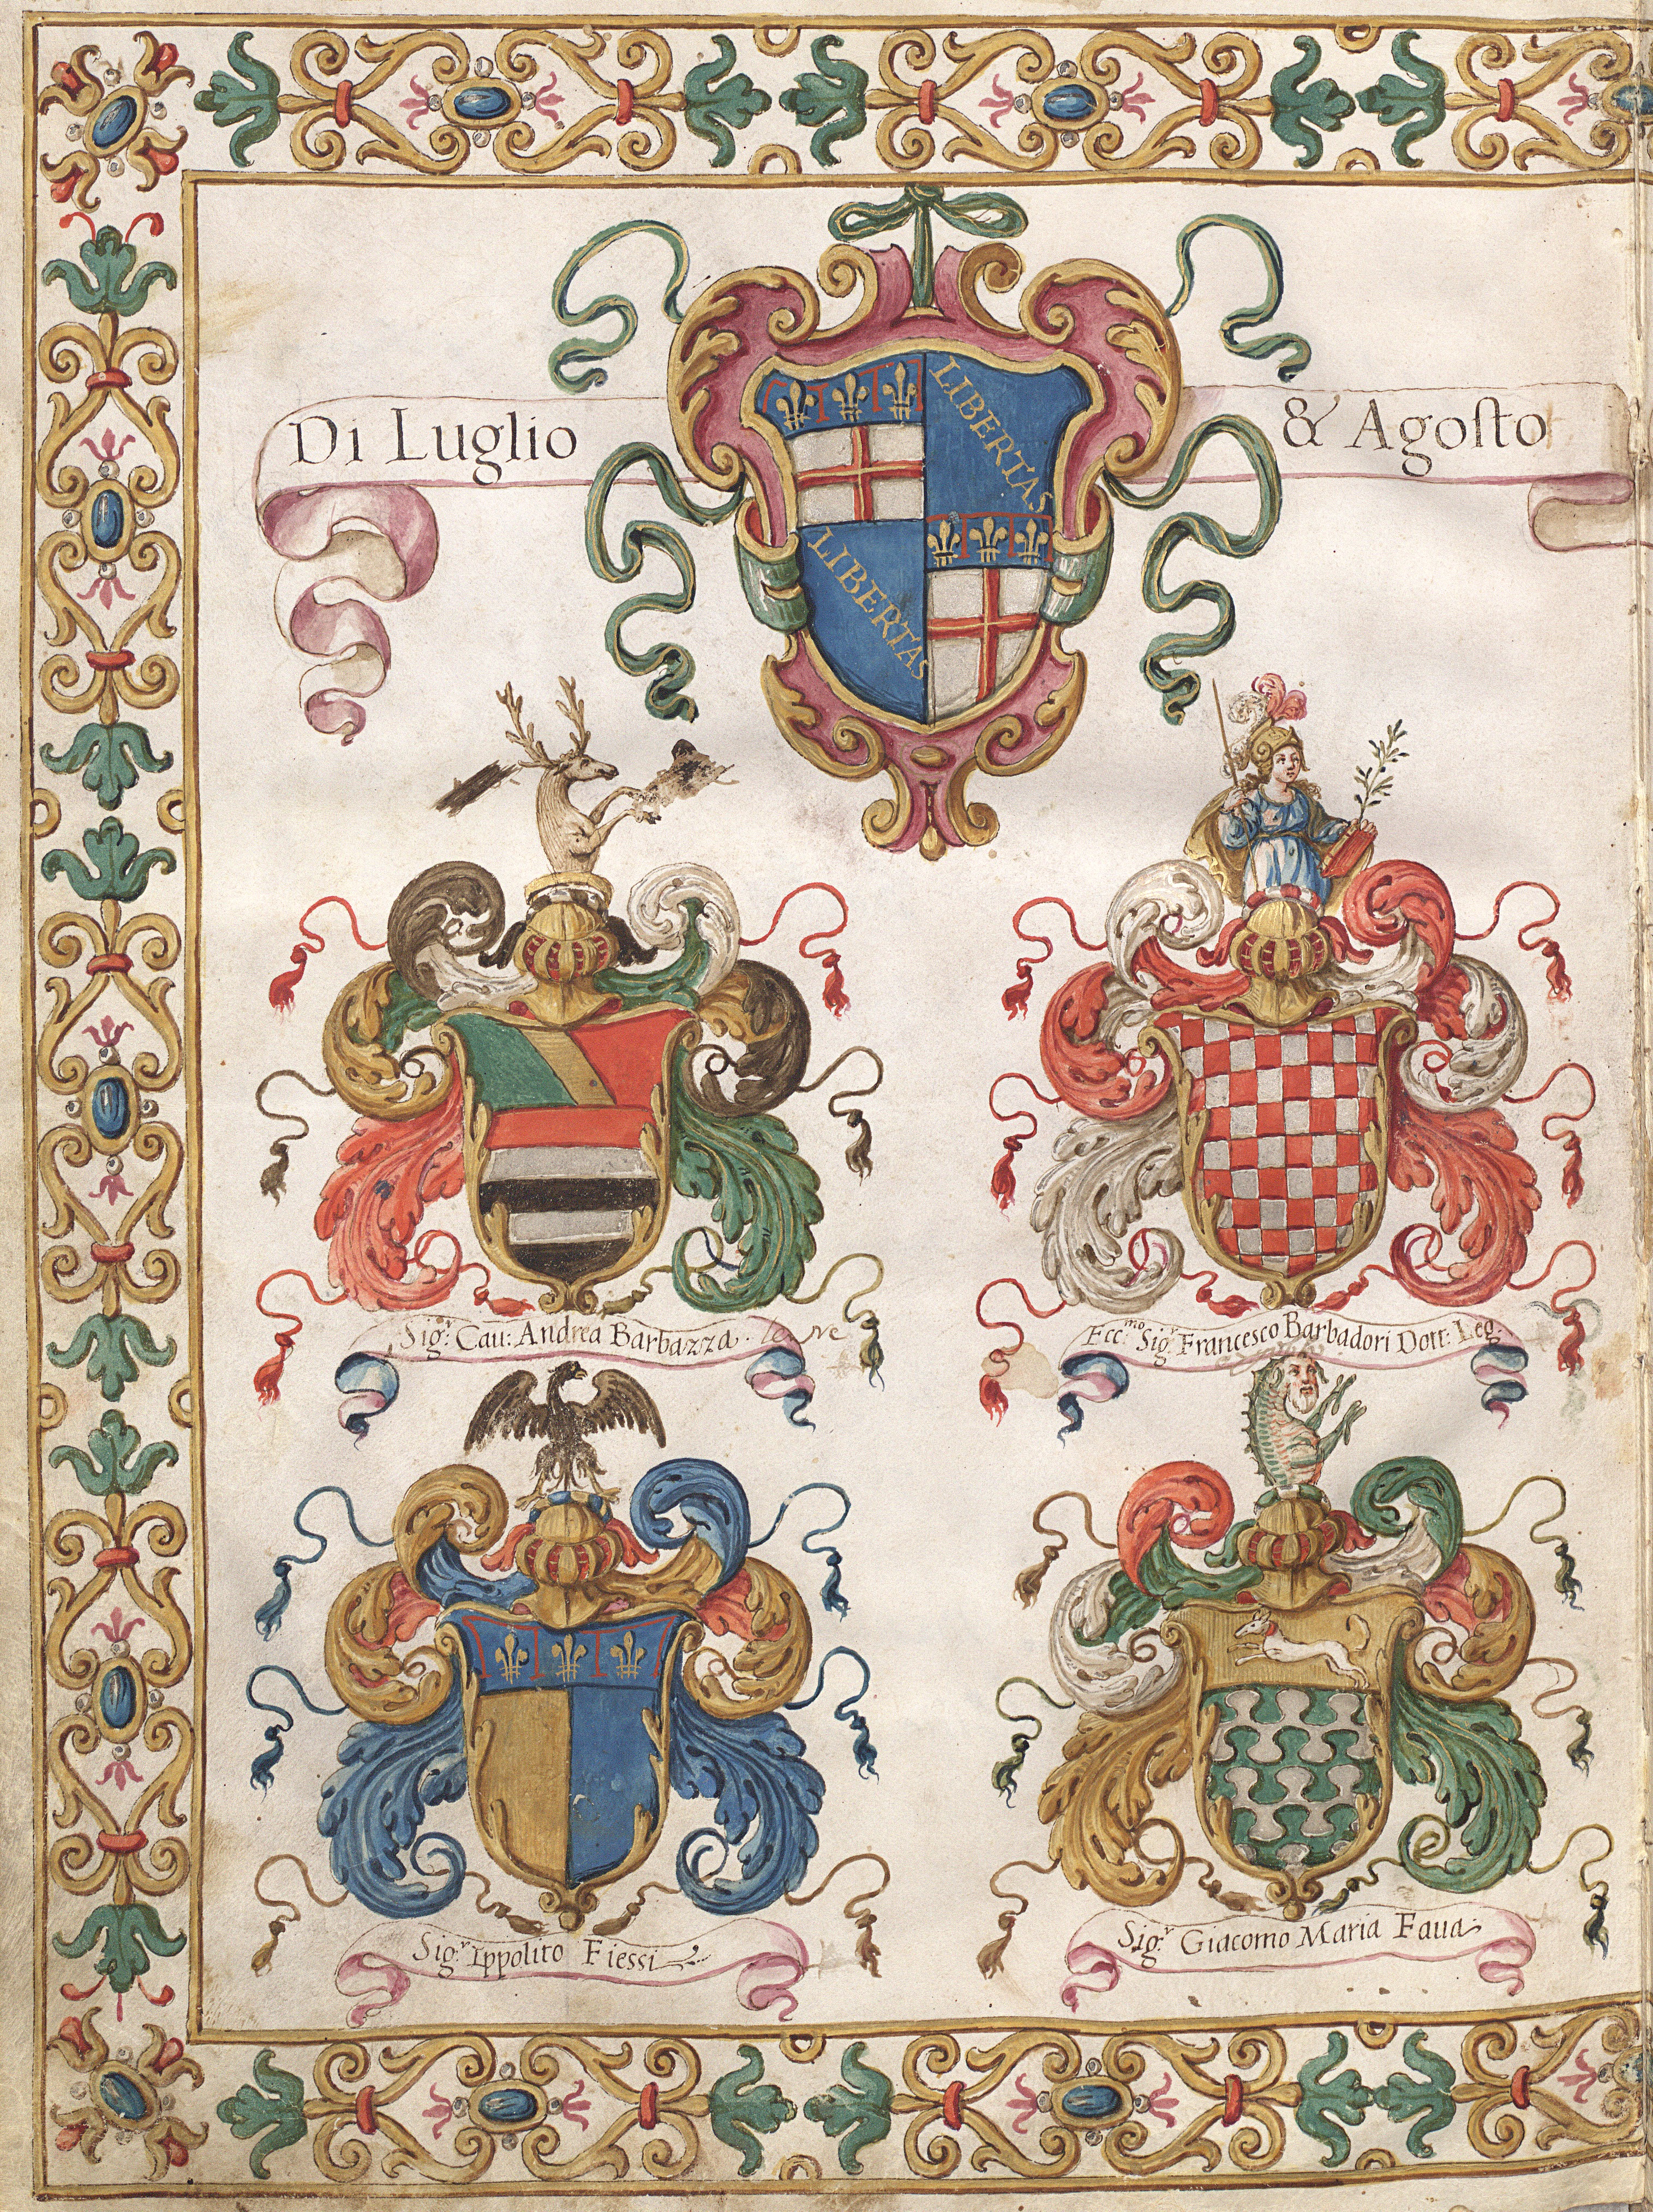 Di Luglio
& Agoſto
LIBERTAS
LIBERTAS
Sig.r Cau: Andrea Barbazza.
Ecc.mo Sig.r Francesco Barbadori Dott: Leg.
Sig.r Ippolito Fiessi
Sig.r Giacomo Maria Faua